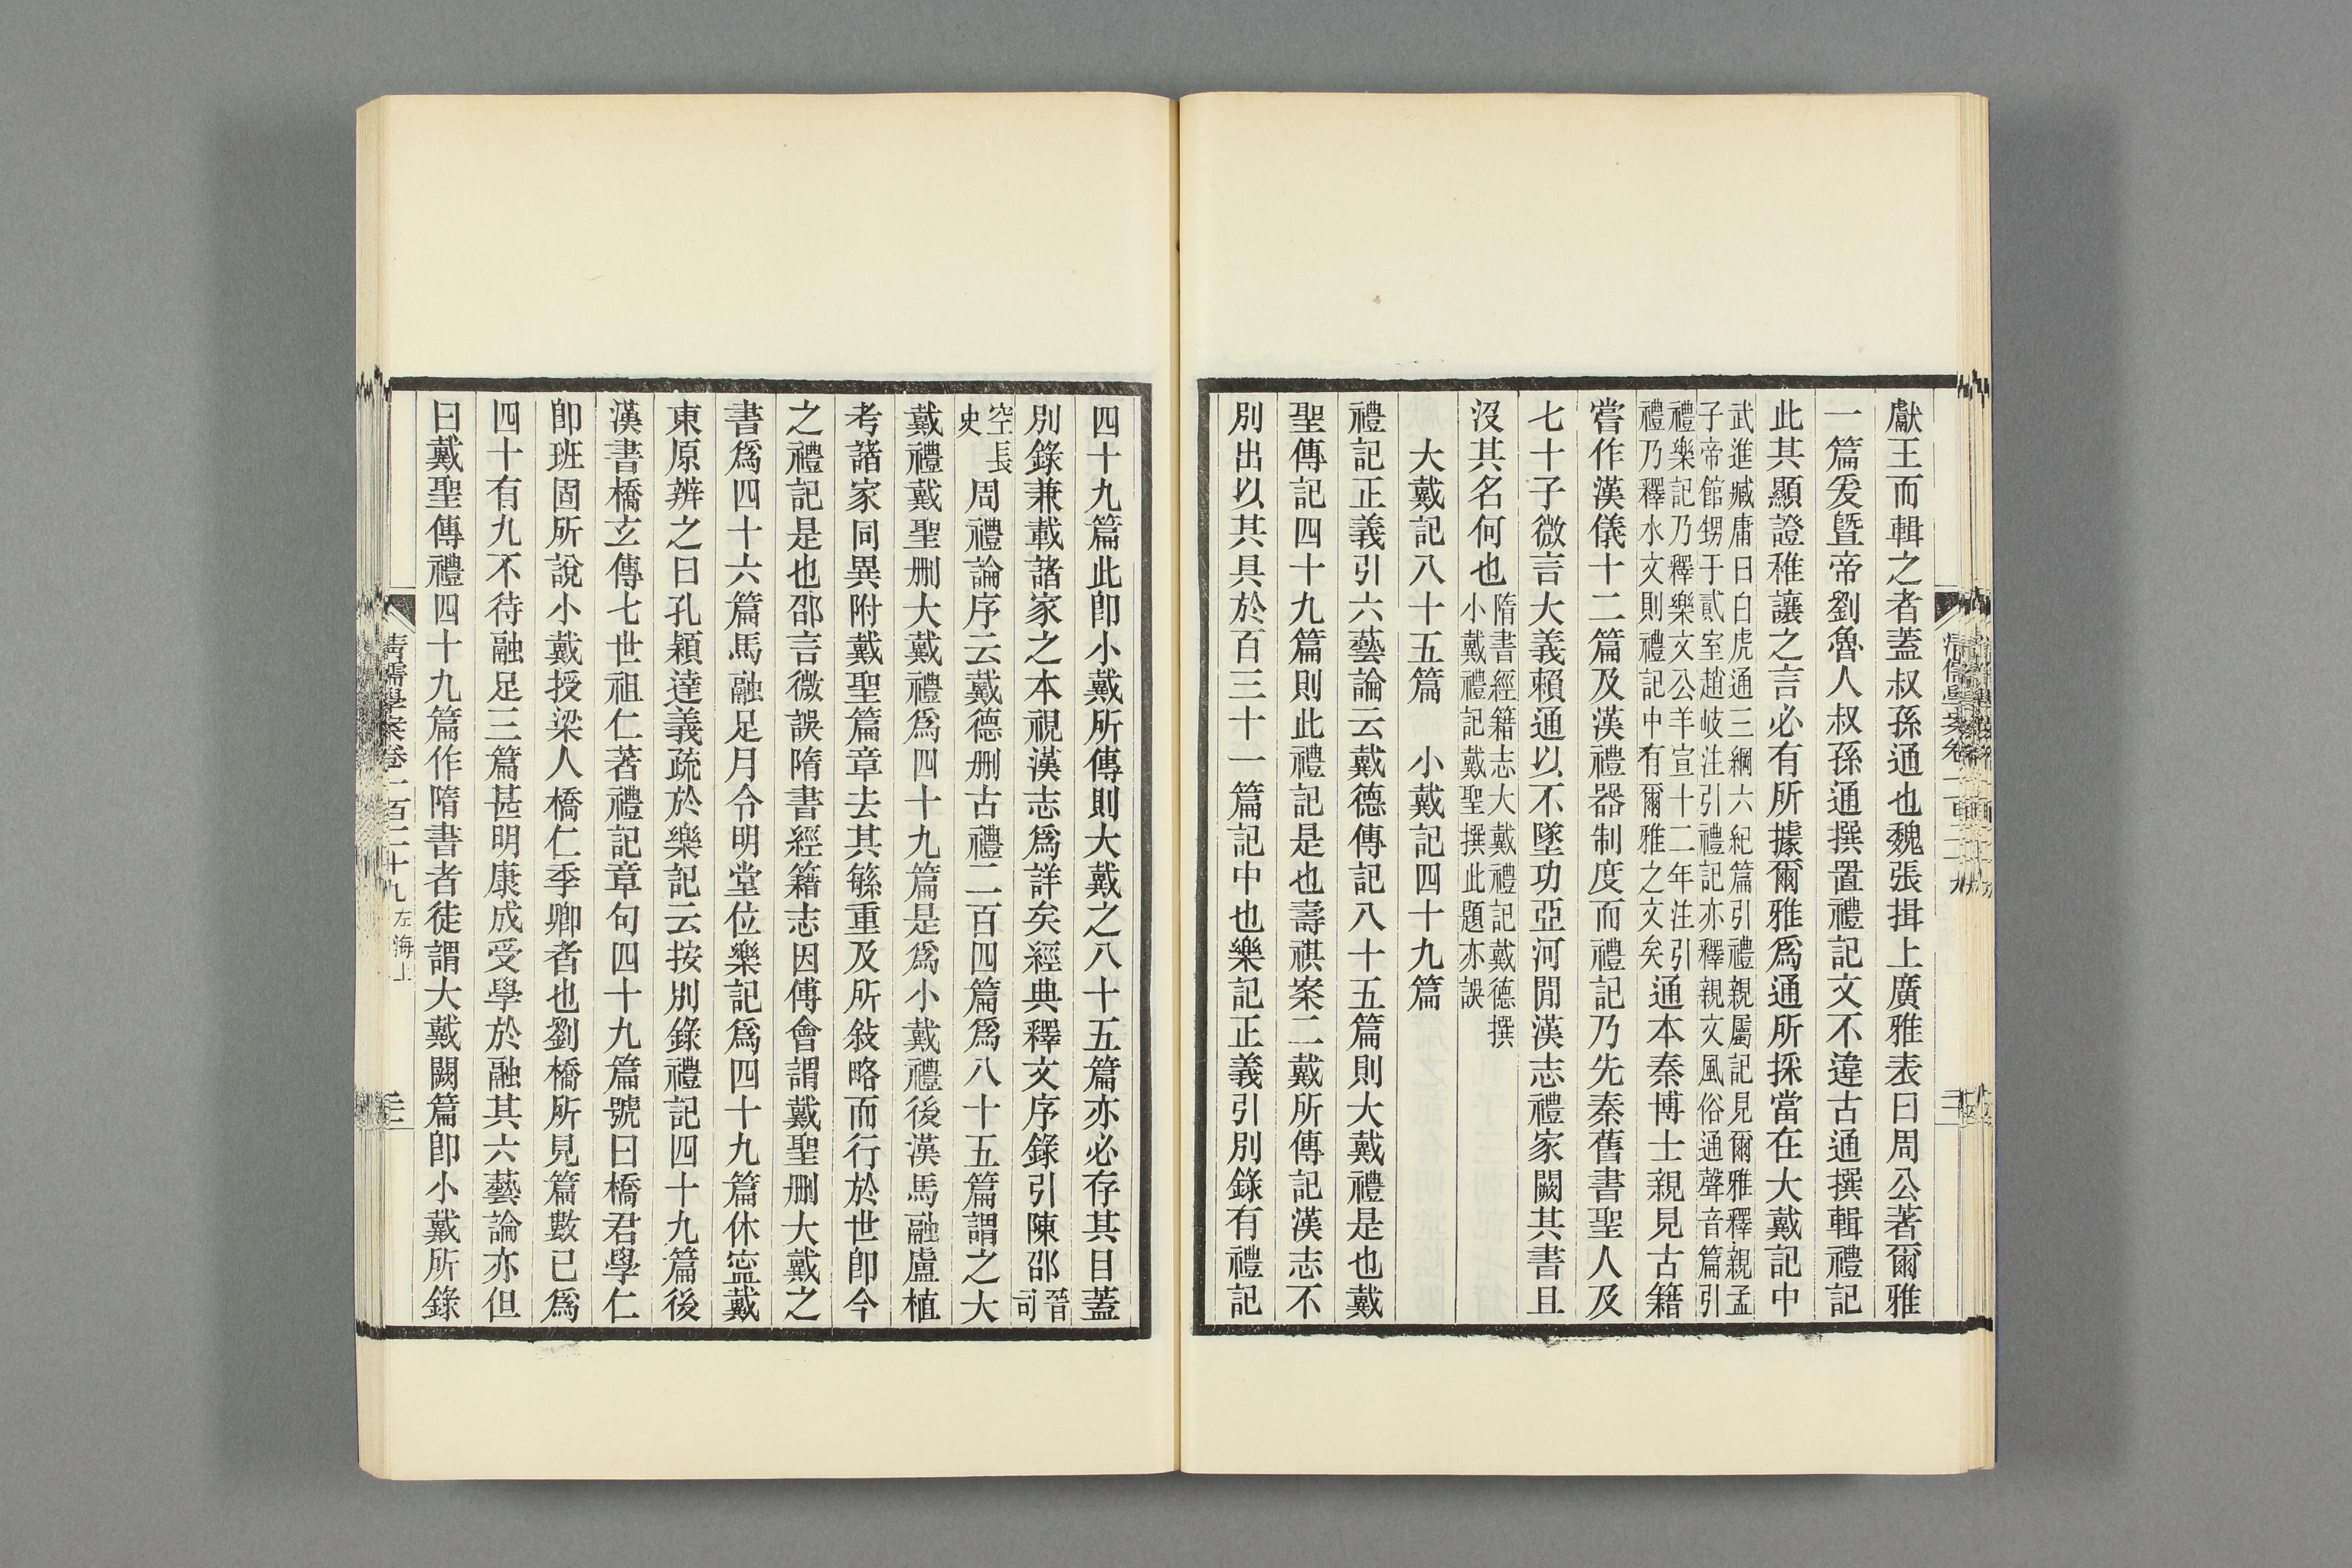 獻王而輯之者蓋叔孫通也魏張揖上廣雅表曰周公著爾雅
一篇爰曁帝劉魯人叔孫通撰置禮記文不違古通撰輯禮記
此其顯證稚讓之言必有所據爾雅爲通所採當在大戴記中
武進臧庸曰白虎通三綱六紀篇引禮親屬記見爾雅釋親孟
子帝館甥于貳室趙岐注引禮記亦釋親文風俗通聲音篇引
禮樂記乃釋樂文公羊宣十二年注引
禮乃釋水文則禮記中有爾雅之文矣
通本秦博士親見古籍
嘗作漢儀十二篇及漢禮器制度而禮記乃先秦舊書聖人及
七十子微言大義賴通以不墜功亞河閒漢志禮家闕其書且
沒其名何也
隋書經籍志大戴禮記戴德撰
小戴禮記戴聖撰此題亦誤
大戴記八十五篇　小戴記四十九篇
禮記正義引六藝論云戴德傳記八十五篇則大戴禮是也戴
聖傳記四十九篇則此禮記是也壽祺案二戴所傳記漢志不
別出以其具於百三十一篇記中也樂記正義引別錄有禮記
清儒學案卷一百二十九
四十九篇此卽小戴所傳則大戴之八十五篇亦必存其目蓋
別錄兼載諸家之本視漢志爲詳矣經典釋文序錄引陳邵
晉
司
空長
史
周禮論序云戴德刪古禮二百四篇爲八十五篇謂之大
戴禮戴聖刪大戴禮爲四十九篇是爲小戴禮後漢馬融盧植
考諸家同異附戴聖篇章去其緐重及所敍略而行於世卽今
之禮記是也邵言微誤隋書經籍志因傅會謂戴聖刪大戴之
書爲四十六篇馬融足月令明堂位樂記爲四十九篇休寍戴
東原辨之曰孔穎達義疏於樂記云按別錄禮記四十九篇後
漢書橋玄傳七世祖仁著禮記章句四十九篇號曰橋君學仁
卽班固所說小戴授梁人橋仁季卿者也劉橋所見篇數已爲
四十有九不待融足三篇甚明康成受學於融其六藝論亦但
曰戴聖傳禮四十九篇作隋書者徒謂大戴闕篇卽小戴所錄
清儒學案卷一百二十九
左海上